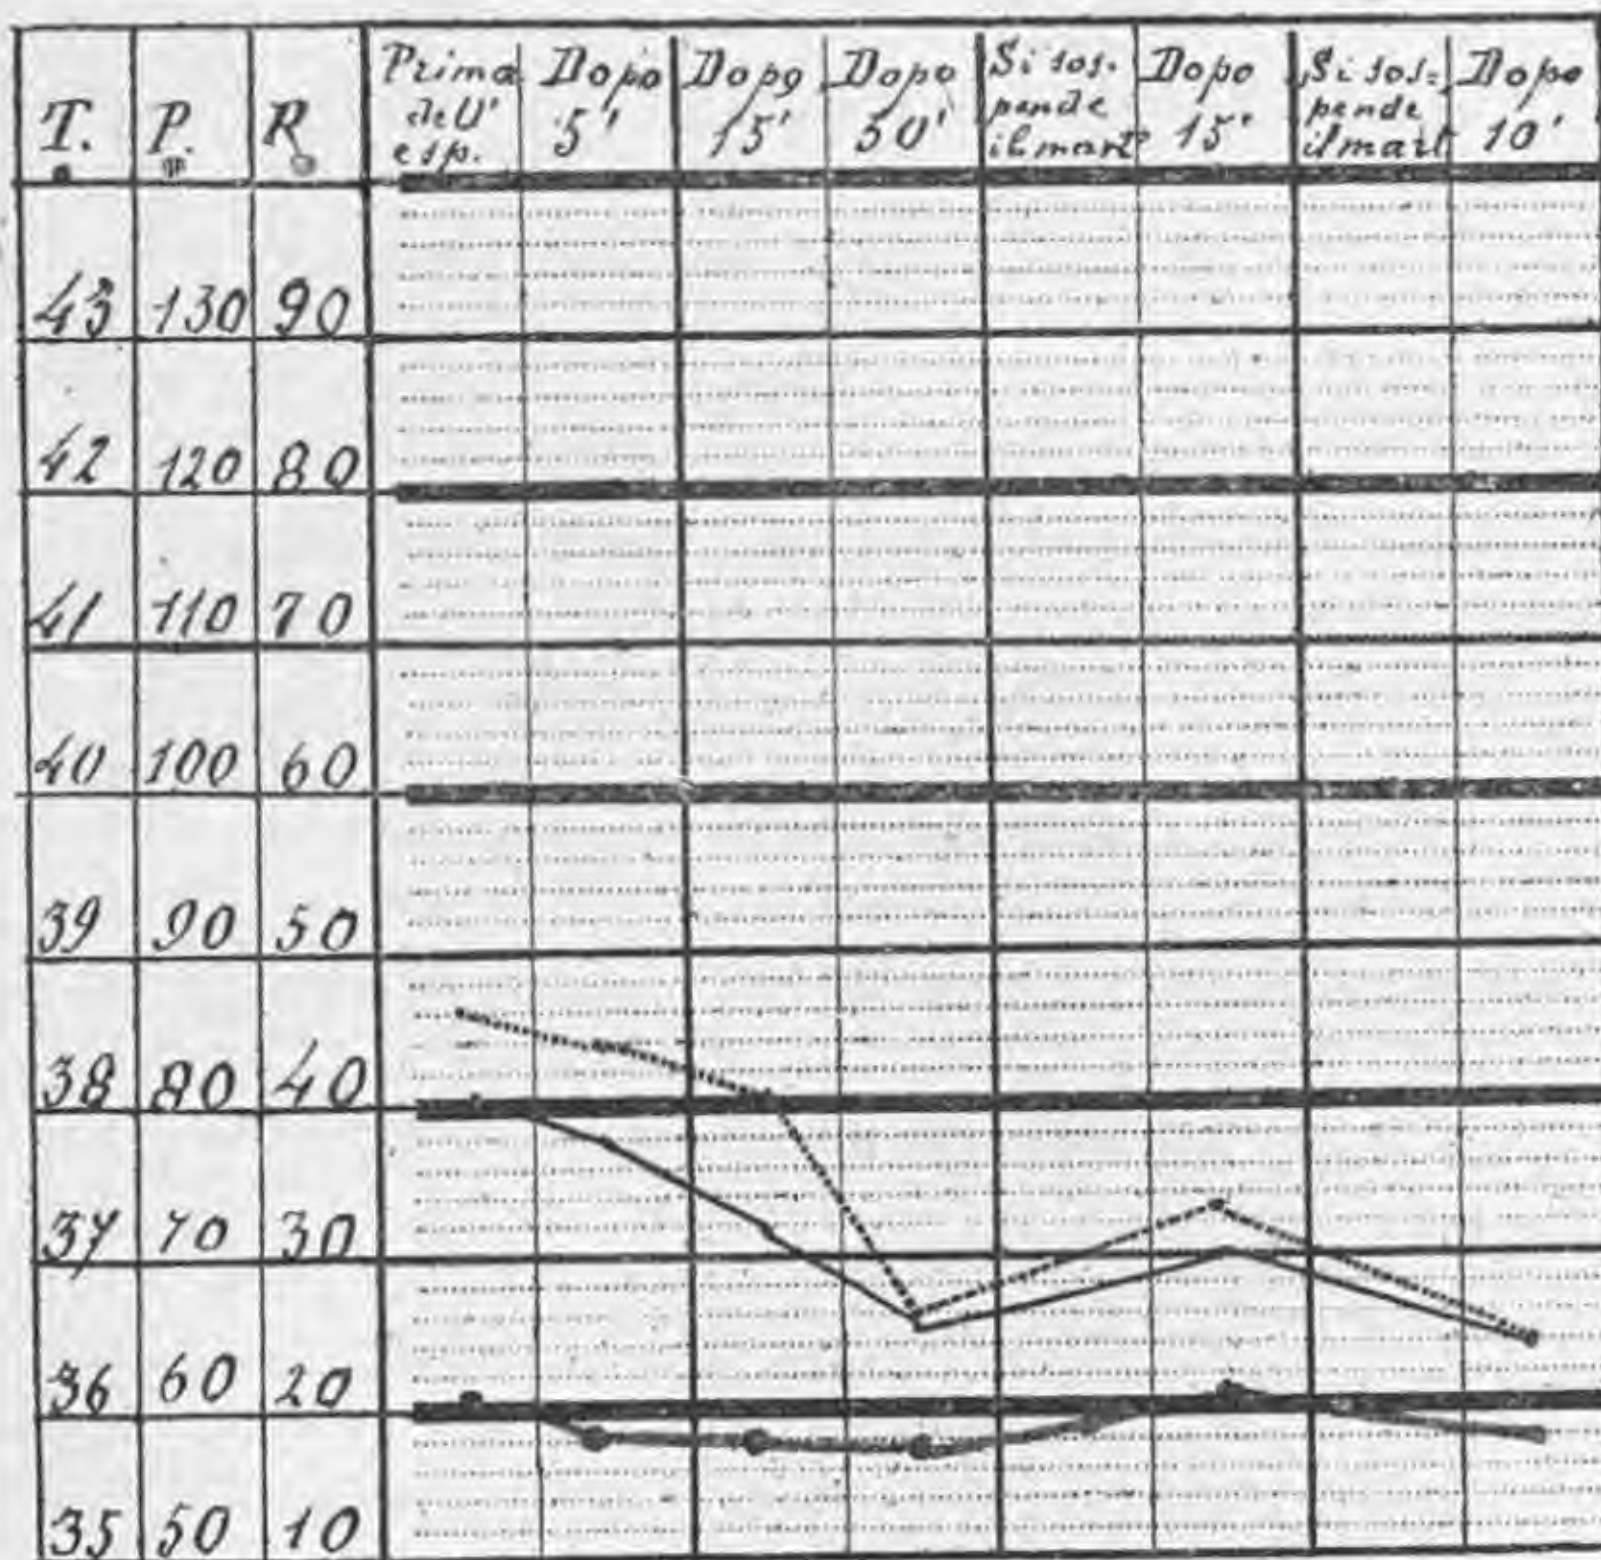 T. P. R Prima dell' esp. Dopo 5' Dopo 15' Dopo 50' Si sos- pende il mart° Dopo 15' Si sos= pende il mart Dopo 10'
43 130 90
42 120 80
41 110 70
40 100 60
39 90 50
38 80 40
37 70 30
36 60 20
35 50 10